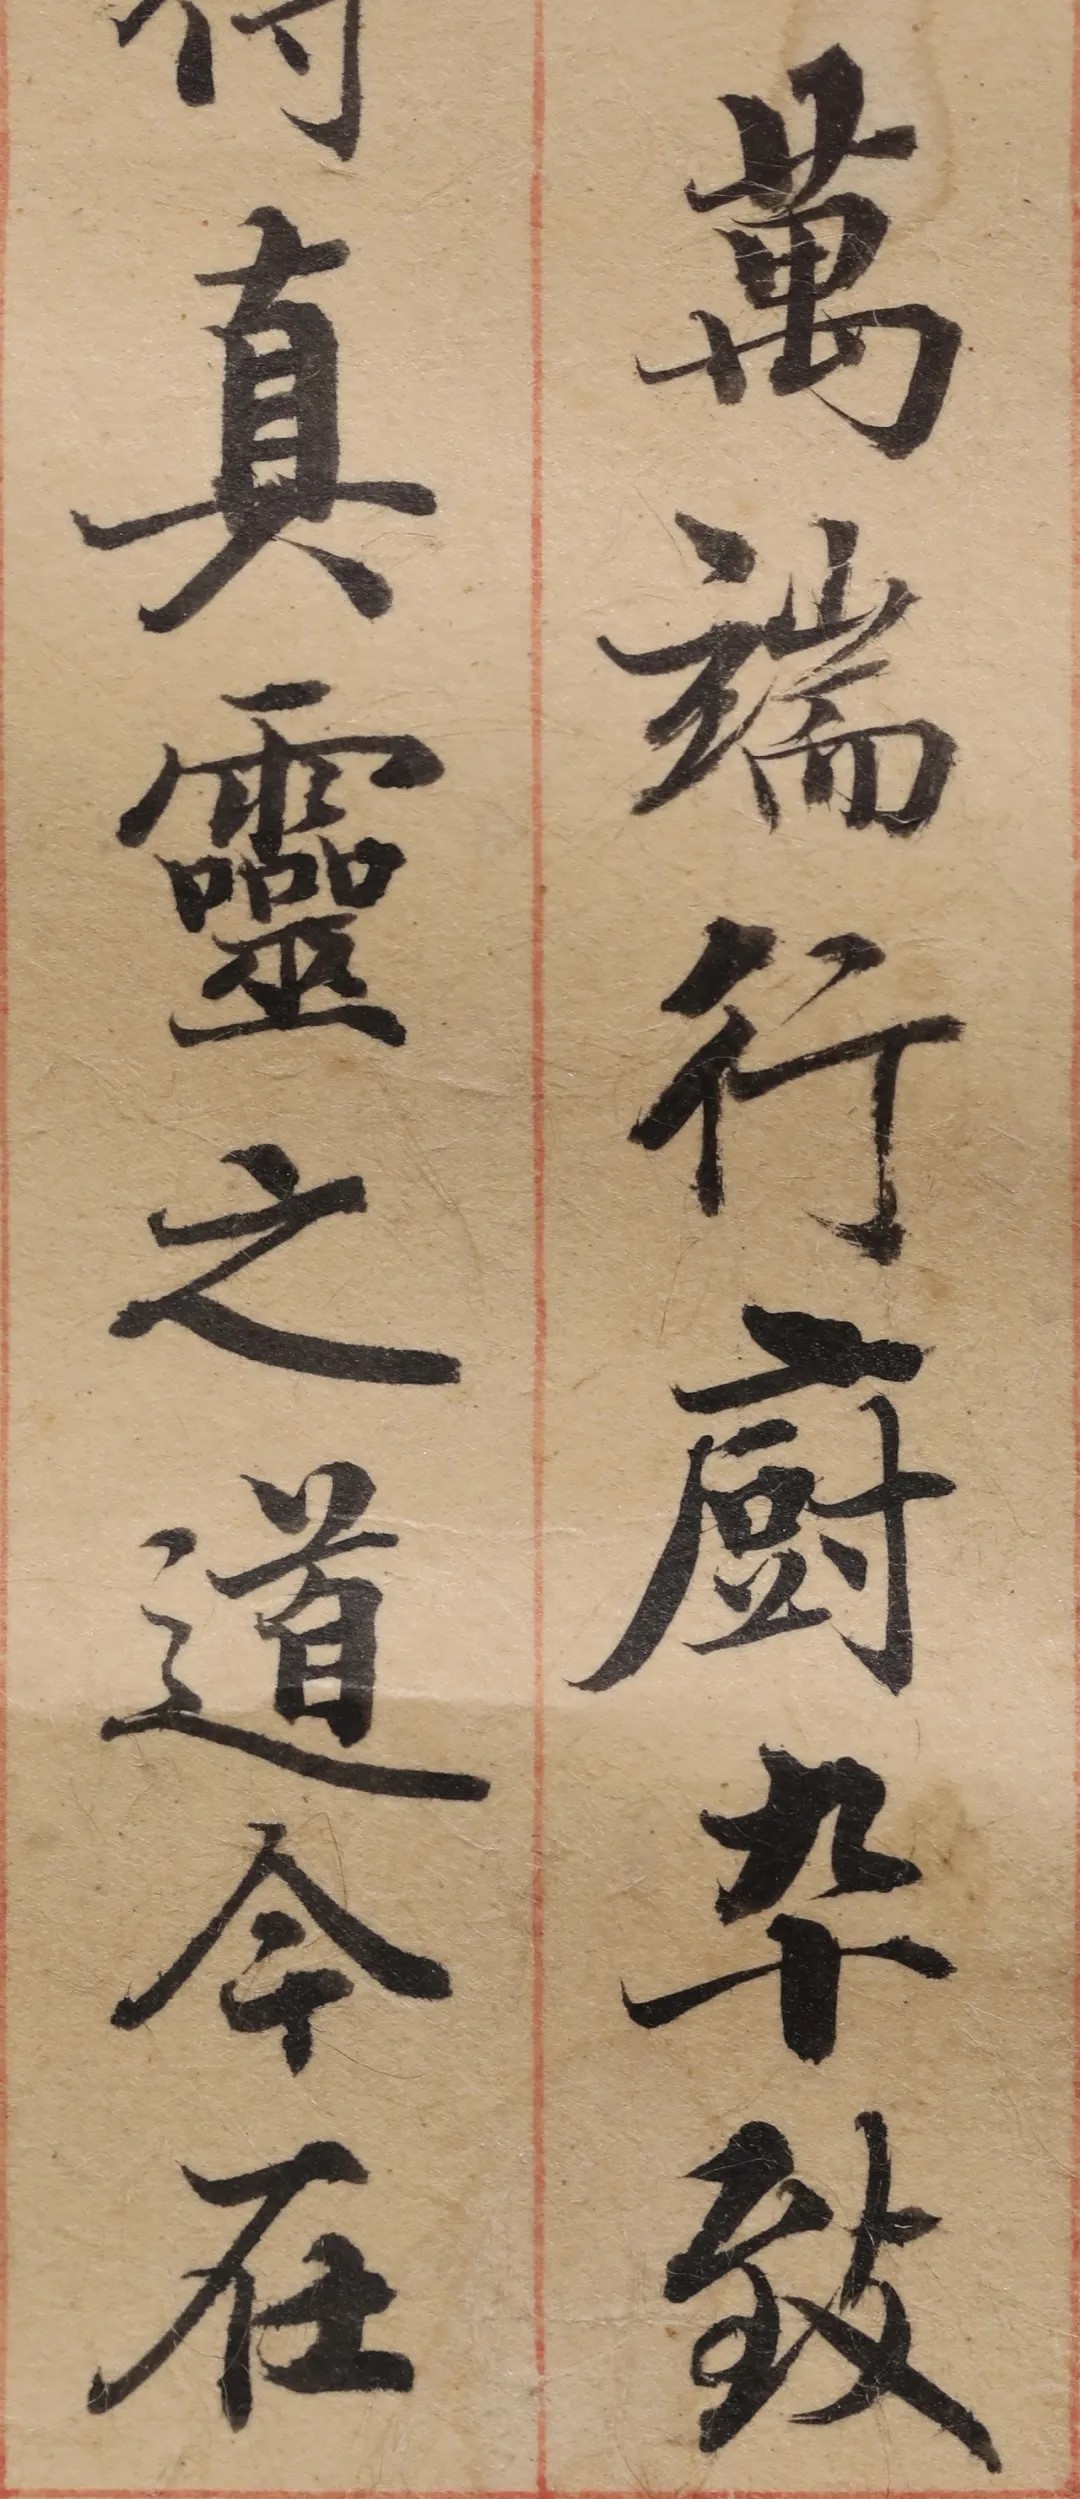 萬端行廚卒致
真靈之道今在